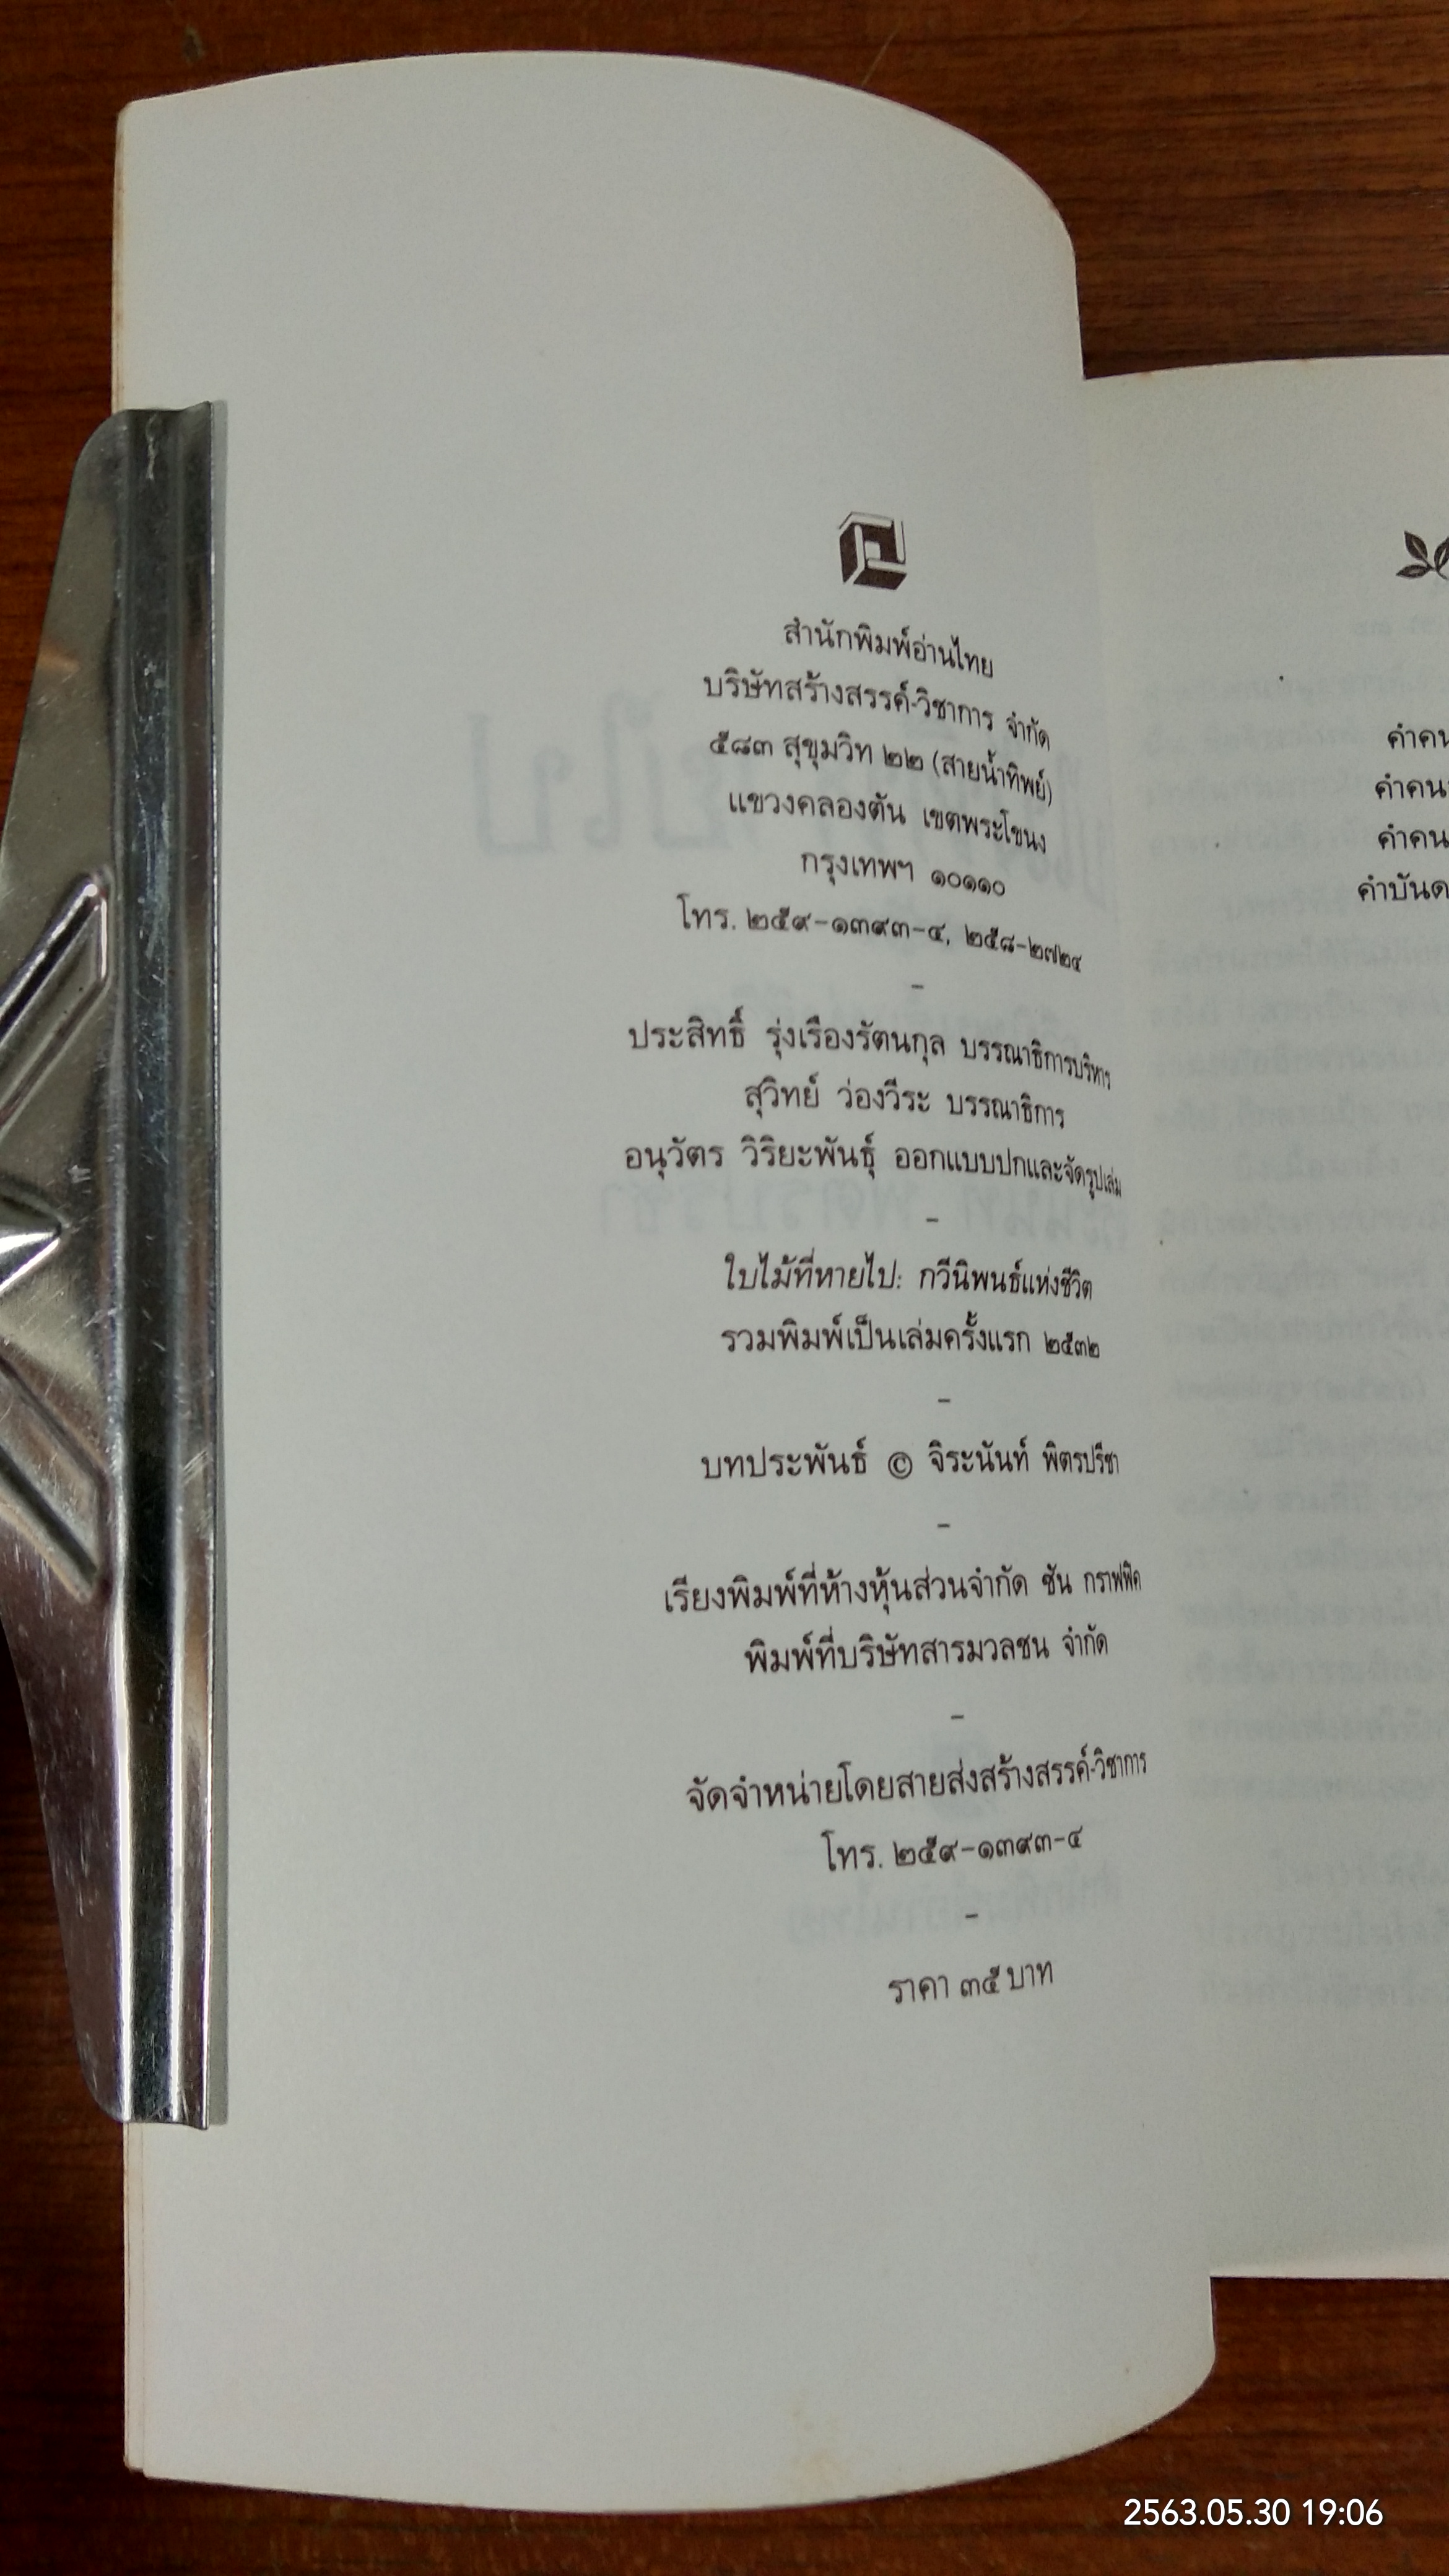 สำนักพิมพ์อ่านไทย
บริษัทสร้างสรรค์-วิชาการ จำกัด
๕๘๓ สุขุมวิท ๒๒ (สายน้ำทิพย์)
แขวงคลองตัน เขตพระโขนง
กรุงเทพฯ ๑๐๑๑๐
โทร. ๒๕๙-๑๓๙๓-๔, ๒๕๘-๒๗๒๔
–
ประสิทธิ์ รุ่งเรืองรัตนกุล บรรณาธิการบริหาร
สุวิทย์ ว่องวีระ บรรณาธิการ
อนุวัตร วิริยะพันธุ์ ออกแบบปกและจัดรูปเล่ม
–
ใบไม้ที่หายไป: กวีนิพนธ์แห่งชีวิต
รวมพิมพ์เป็นเล่มครั้งแรก ๒๕๓๒
–
บทประพันธ์ © จิระนันท์ พิตรปรีชา
–
เรียงพิมพ์ที่ห้างหุ้นส่วนจำกัด ซัน กราฟฟิค
พิมพ์ที่บริษัทสารมวลชน จำกัด
–
จัดจำหน่ายโดยสายส่งสร้างสรรค์-วิชาการ
โทร. ๒๕๙-๑๓๙๓-๔
–
ราคา ๓๕ บาท
2563.05.30 19:06